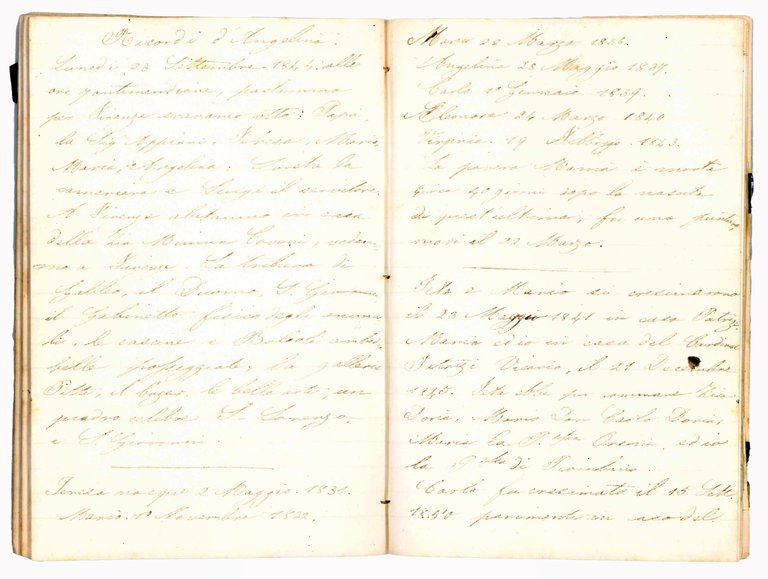 Ricordi d'Angelina.
Lunedì 23 Settembre 1844. alle
ore antimeridiane, partimmo
per Firenze eravamo otto: Papà,
la Sig. Appiani, Teresa, Mario,
Maria, Angelina. Loreta la
cameriera e Luigi il servitore.
A Firenze abitammo in casa
della Zia Minina, vedem-
mo a Firenze la tribuna di
Galileo, il Duomo, S. Giovanni
il Gabinetto fisico degli anima-
li, le cascine e Boboli ambi
belle passeggiate; la galleria
Pitti, il bazar, le belle arti, un
quadro celebre S. Lorenzo,
e S. Giovanni.
Teresa nacque 2 Maggio. 1831.
Mario. 1º Novembre 1832.
Maria 28 Marzo 1836.
Angelina 28 Maggio 1837.
Carlo 1º Gennaio 1839.
Eleonora 24 Marzo 1840
Virginia. 19 Febbrajo 1843.
La povera Mamà è morta
circa 40 giorni dopo la nascita
di quest'ultima, fu una
morì il 22 Marzo.
e Mario si cresimarono
il 23 Maggio 1841 in casa Patrizi
Maria ed io in casa del Cardinal
Patrizi Vicario, il 21 Decembre
1845. ebbe per commare Zia
Doria, Mario Don Carlo Doria,
Maria la P.essa Orsini, ed io
la di Piombino.
Carlo fu cresimato il 15 Sett.
1850 parimente in casa del